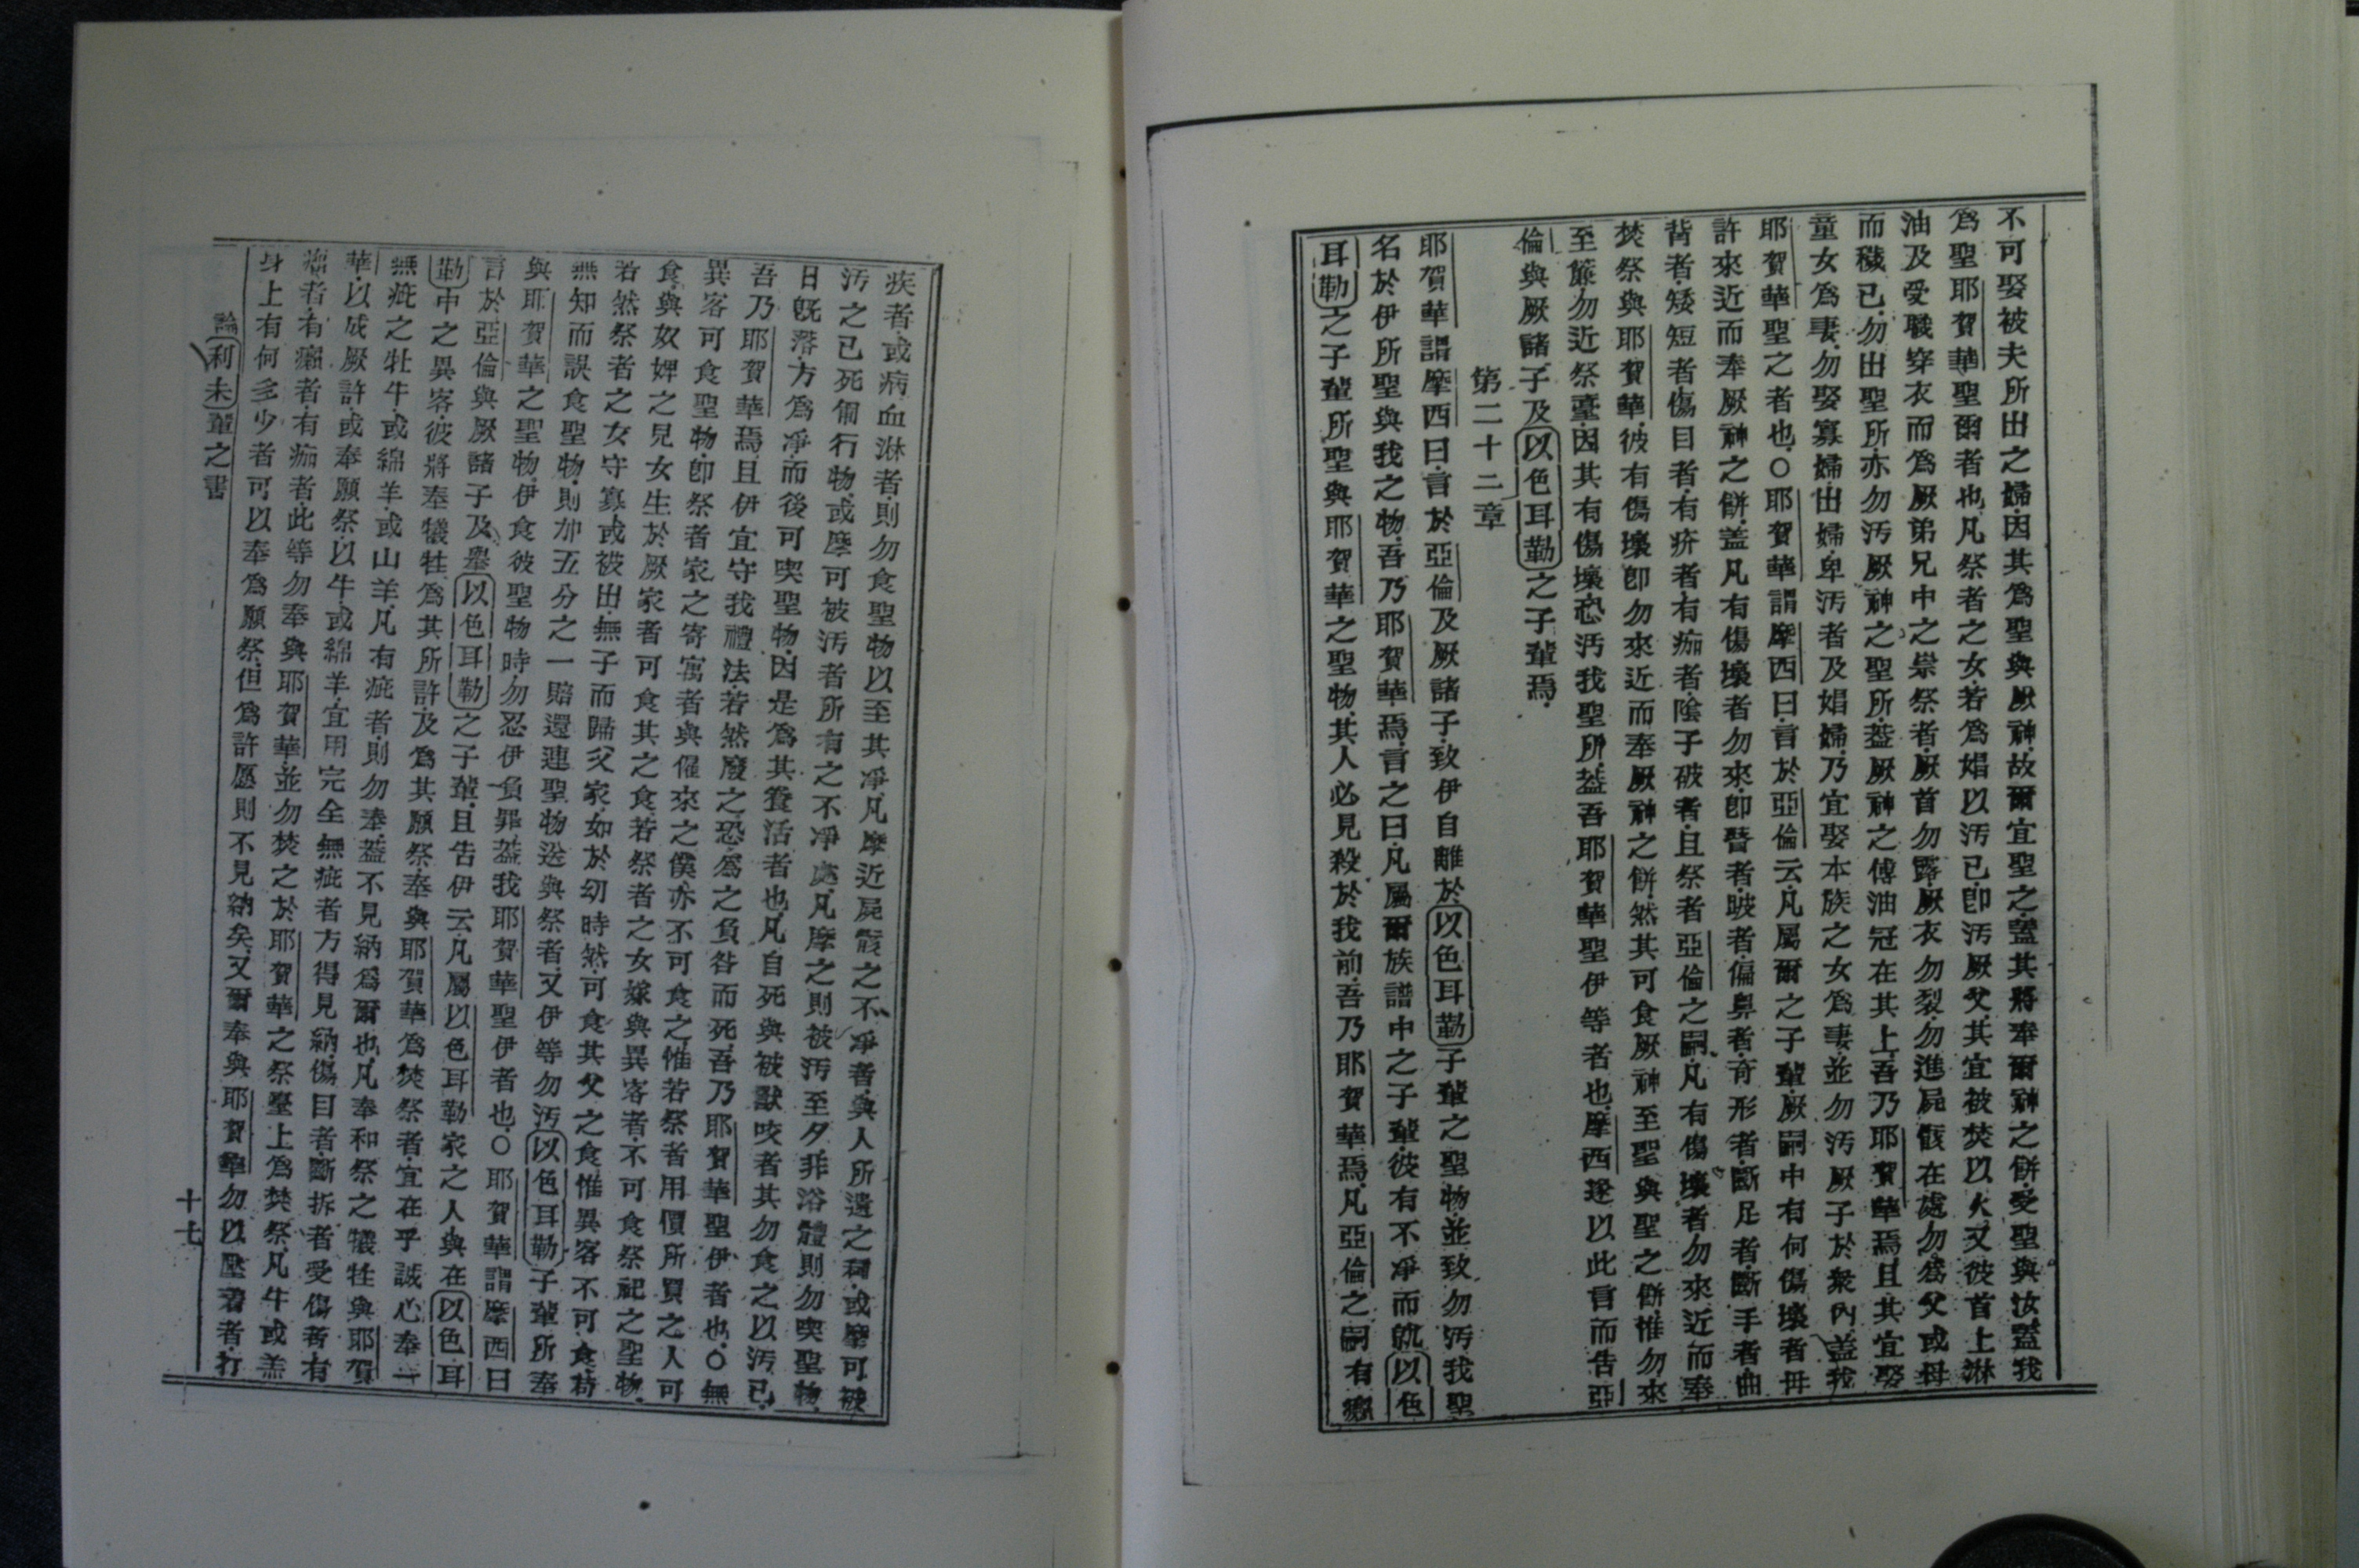 不可娶被夫所出之婦．因其爲聖與厥神．故爾宜聖之．蓋其將奉爾神之餅．受聖與汝．蓋我
爲聖耶賀華聖爾者也．凡祭者之女．若爲娼以汚己．卽汚厥父．其宜被焚以火．又彼首上淋
油及受職穿衣而爲厥弟兄中之崇祭者．厥首勿露．厥衣勿裂．勿進屍骸在處．勿爲父或母
而穢己．勿出聖所．亦勿汚厥神之聖所．蓋厥神之傅油冠在其上．吾乃耶賀華焉．且其宜娶
童女爲妻．勿娶寡婦．出婦．卑汚者及娼婦．乃宜娶本族之女爲妻．並勿汚厥子於衆內．蓋我
耶賀華聖之者也．○耶賀華謂摩西曰．言於亞倫云．凡屬爾之子輩厥嗣中有何傷壞者毋
許來近而奉厥神之餅．蓋凡有傷壞者勿來．卽瞽者．跛者．偏鼻者．奇形者．斷足者．斷手者．曲
背者．矮短者．傷目者．有疥者．有痂者．陰子破者．且祭者亞倫之嗣．凡有傷壞者．勿來近而奉
焚祭與耶賀華．彼有傷壞卽勿來近而奉厥神之餅．然其可食厥神至聖與聖之餅．惟勿來
至簾．勿近祭臺．因其有傷壞．恐汚我聖所．蓋吾耶賀華聖伊等者也．摩西遂以此言而告亞
倫與厥諸子及以色耳勒之子輩焉．
第二十二章
耶賀華謂摩西曰．言於亞倫及厥諸子．致伊自離於以色耳勒子輩之聖物．並致勿汚我聖
名於伊所聖與我之物．吾乃耶賀華焉．言之曰．凡屬爾族譜中之子輩．彼有不凈而就以色
耳勒之子輩所聖與耶賀華之聖物．其人必見殺於我前．吾乃耶賀華焉．凡亞倫之嗣有癩
疾者．或病血淋者．則勿食聖物以至其凈．凡摩近屍骸之不凈者．與人所遺之種．或摩可被
汚之已死匍行物．或摩可被汚者所有之不凈處．凡摩之則被汚至夕．非浴體則勿喫聖物．
日既落．方爲凈．而後可喫聖物．因是爲其養活者也．凡自死與被獸咬者其勿食之以汚己．
吾乃耶賀華焉．且伊宜守我禮法．若然廢之．恐爲之負咎而死．吾乃耶賀華聖伊者也．○無
異客可食聖物．卽祭者家之寄寓者與催來之僕．亦不可食之．惟若祭者用價所買之人可
食．與奴婢之見女生於厥家者可食其之食．若祭者之女嫁與異客者．不可食祭祀之聖物．
若然祭者之女守寡．或被出．無子而歸父家．如於幼時．然可食其父之食．惟異客不可食．若
無知而誤食聖物．則加五分之一賠還．連聖物送與祭者．又伊等勿汚以色耳勒子輩所奉
與耶賀華之聖物．伊食彼聖物時．勿忍伊負罪．蓋我耶賀華聖伊者也．○耶賀華謂摩西曰
言於亞倫與厥諸子及舉以色耳勒之子輩．且告伊云．凡屬以色耳勒家之人與在以色耳
勒中之異客．彼將奉犧牲爲其所許．及爲其願祭．奉與耶賀華爲焚祭者．宜在乎誠心奉一
無疵之牡牛．或綿羊．或山羊．凡有疵者．則勿奉．蓋不見納爲爾也．凡奉和祭之犧牲與耶賀
華．以成厥許．或奉願祭．以牛．或綿羊．宜用完全無疵者方得見納．傷目者．斷拆者．受傷者．有
瘤者．有癩者．有痂者．此等勿奉與耶賀華．並勿焚之於耶賀華之祭臺上爲焚祭．凡牛或羔
身上有何多少者可以奉爲願祭．但爲許愿則不見納矣．又爾奉與耶賀華勿以壓着者．打
論利未輩之書
十七